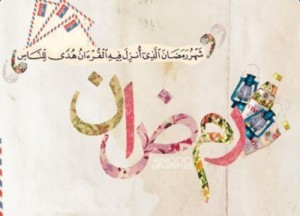 شَهْرُ رَمَضَانَ الَّذِي أُنْزِلَ فِيهِ الْقُرْءَانُ هُدًى لِلنَّاسِ
رمضان